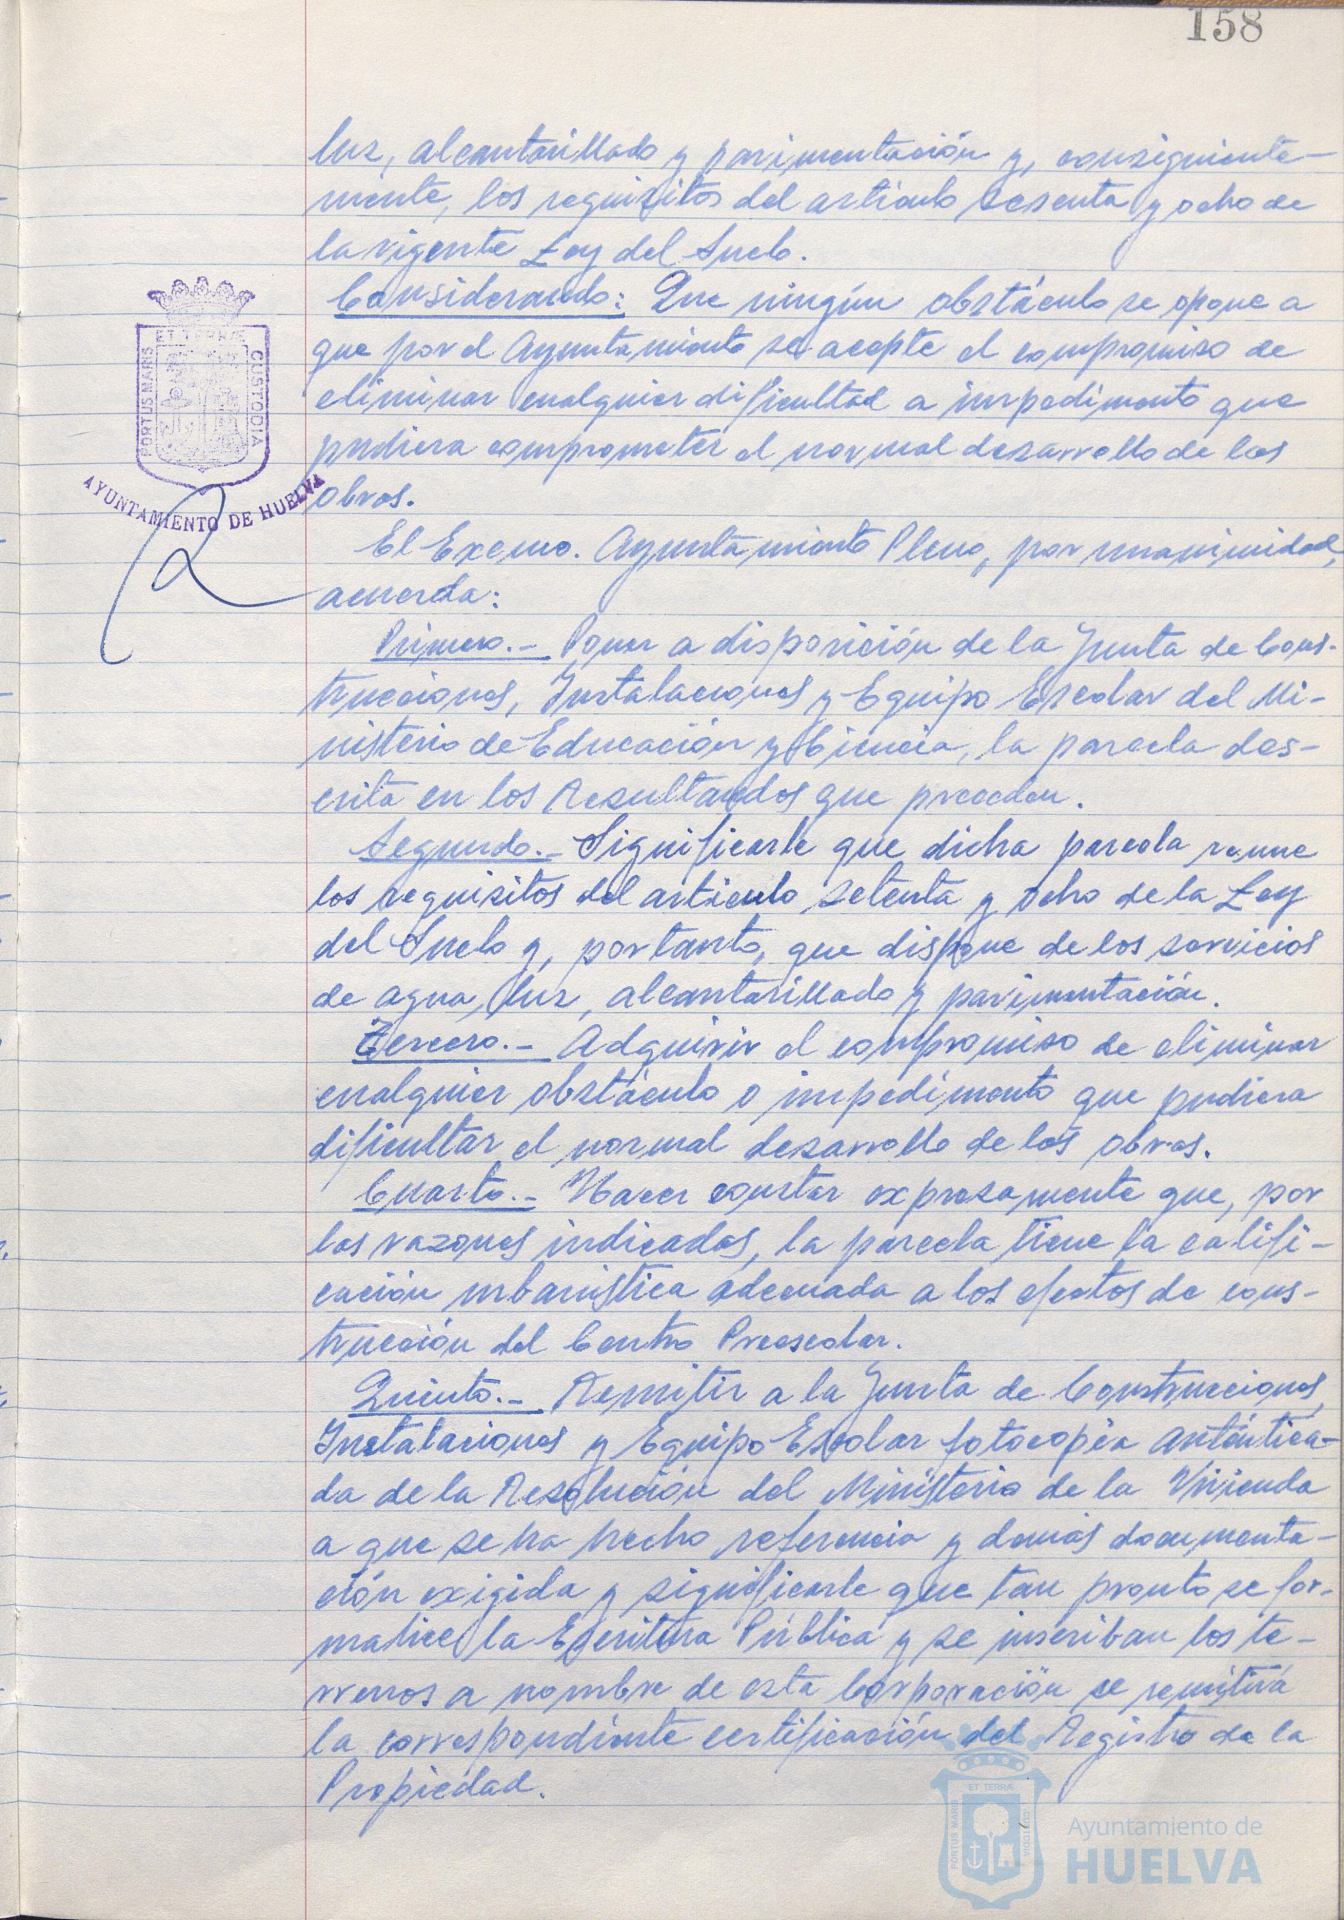 158
luz, alcantarillado y pavimentación y, consiguiente-
mente, los requisitos del artículo sesenta y ocho de
la vigente Ley del Suelo.
Considerando: Que ningún obstáculo se opone a
que por el Ayuntamiento se acepte el compromiso de
eliminar cualquier dificultad a impedimento que
pudiera comprometer el normal desarrollo de las
obras.
El Excmo. Ayuntamiento Pleno, por unanimidad,
acuerda:
Primero.- Poner a disposición de la Junta de Cons-
trucciones, Instalaciones y Equipo Escolar del Mi-
nisterio de Educación y Ciencia, la parcela des-
crita en los Resultandos que preceden.
Segundo.- Significarle que dicha parcela reune
los requisitos del artículo setenta y ocho de la Ley
del Suelo y, por tanto, que dispone de los servicios
de agua, luz, alcantarillado y pavimentación.
Tercero.- Adquirir el compromiso de eliminar
cualquier obstáculo o impedimento que pudiera
dificultar el normal desarrollo de las obras.
Cuarto.- Hacer constar expresamente que, por
las razones indicadas, la parcela tiene la califi-
cación urbanística adecuada a los efectos de cons-
trucción del Centro Preescolar.
Quinto.- Remitir a la Junta de Construcciones,
Instalaciones y Equipo Escolar fotocopia autentica-
da de la Resolución del Ministerio de la Vivienda
a que se ha hecho referencia y demás documenta-
ción exigida y significarle que tan pronto se for-
malice la Escritura Pública y se inscriban los te-
rrenos a nombre de esta Corporación se remitirá
la correspondiente certificación del Registro de la
Propiedad.
ET TERRÆ
PORTUS MARIS
CUSTODIA
AYUNTAMIENTO DE HUELVA
ET TERRÆ
PORTUS MARIS
CUSTODIA
Ayuntamiento de
HUELVA